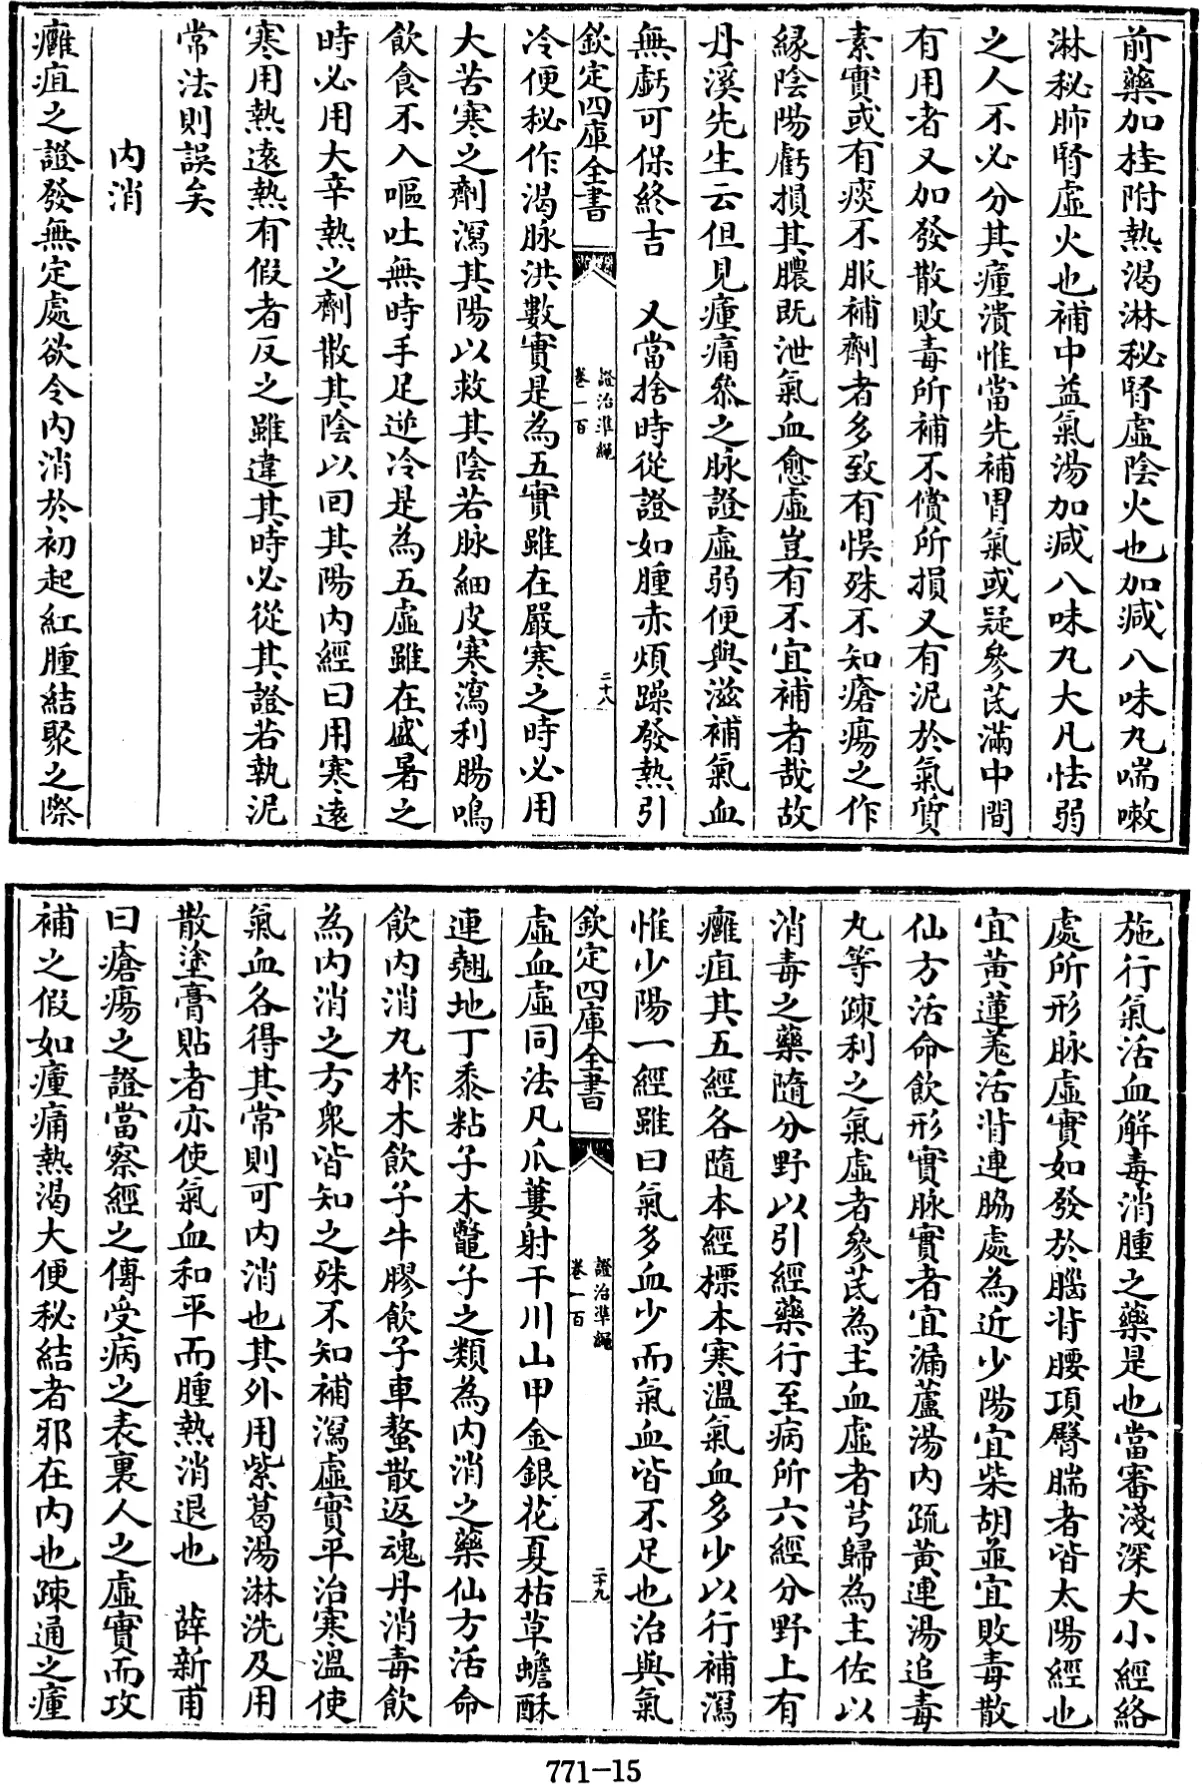 前藥加桂附熱渴淋秘腎虛陰火也加減八味丸喘嗽
淋秘肺腎虛火也補中益氣湯加減八味丸大凡怯弱
之人不必分其瘇潰惟當先補胃氣或疑參芪滿中間
有用者又加發散敗毒所補不償所損又有泥於氣質
素實或有痰不服補劑者多致有悞殊不知瘡瘍之作
縁陰陽虧損其膿既泄氣血愈虛豈有不宜補者哉故
丹溪先生云但見瘇痛叅之脉證虛弱便與滋補氣血
無虧可保終吉 又當捨時從證如腫赤煩躁發熱引
欽定四庫全書
證治準繩
卷一百
二十八
冷便秘作渴脉洪數實是為五實雖在嚴寒之時必用
大苦寒之劑瀉其陽以救其陰若脉細皮寒瀉利腸鳴
飲食不入嘔吐無時手足逆冷是為五虛雖在盛暑之
時必用大辛熱之劑散其陰以回其陽内經曰用寒逺
寒用熱逺熱有假者反之雖違其時必從其證若執泥
常法則誤矣
内消
癰疽之證發無定處欲令内消於初起紅腫結聚之際
施行氣活血解毒消腫之藥是也當審淺深大小經絡
處所形脉虛實如發於腦背腰項臀腨者皆太陽經也
宜黄蓮羗活背連脇處為近少陽宜柴胡並宜敗毒散
仙方活命飲形實脉實者宜漏蘆湯内疏黄連湯追毒
丸等疎利之氣虛者參芪為主血虛者芎歸為主佐以
消毒之藥隨分野以引經藥行至病所六經分野上有
癰疽其五經各隨本經標本寒溫氣血多少以行補瀉
惟少陽一經雖曰氣多血少而氣血皆不足也治與氣
欽定四庫全書
證治準繩
卷一百
二十九
虛血虛同法凡爪蔞射干川山甲金銀花夏枯草蟾酥
連翹地丁黍粘子木鼈子之類為内消之藥仙方活命
飲内消丸柞木飲子牛膠飲子車螯散返魂丹消毒飲
為内消之方衆皆知之殊不知補瀉虛實平治寒溫使
氣血各得其常則可内消也其外用紫葛湯淋洗及用
散塗膏貼者亦使氣血和平而腫熱消退也 薛新甫
曰瘡瘍之證當察經之傳受病之表裏人之虛實而攻
補之假如瘇痛熱渴大便秘結者邪在内也疎通之瘇
771-15